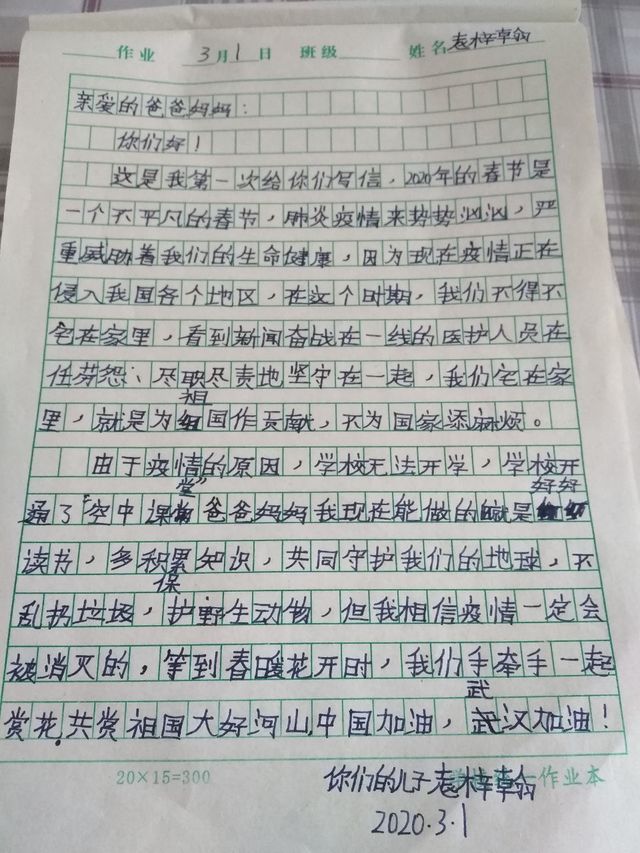 作业 3月1日 班级 姓名袁梓翰
亲爱的爸爸妈妈：
你们好！
这是我第一次给你们写信，2020年的春节是
一个不平凡的春节，肺炎疫情来势势汹汹，严
重威胁着我们的生命健康，因为现在疫情正在
侵入我国各个地区，在这个时期，我们不得不
宅在家里，看到新闻奋战在一线的医护人员在
任劳怨、尽职尽责地坚守在一起，我们宅在家
里，就是为祖国作贡献，不为国家添麻烦。
由于疫情的原因，学校无法开学，学校开
通了“空中课堂”爸爸妈妈我现在能做的就是好好
读书，多积累知识，共同守护我们的地球，不
乱扔垃圾，保护野生动物，但我相信疫情一定会
被消灭的，等到春暖花开时，我们手牵手一起
赏花，共赏祖国大好河山，中国加油，武汉加油！
20×15=300 作业本
你们的儿子袁梓翰
2020.3.1